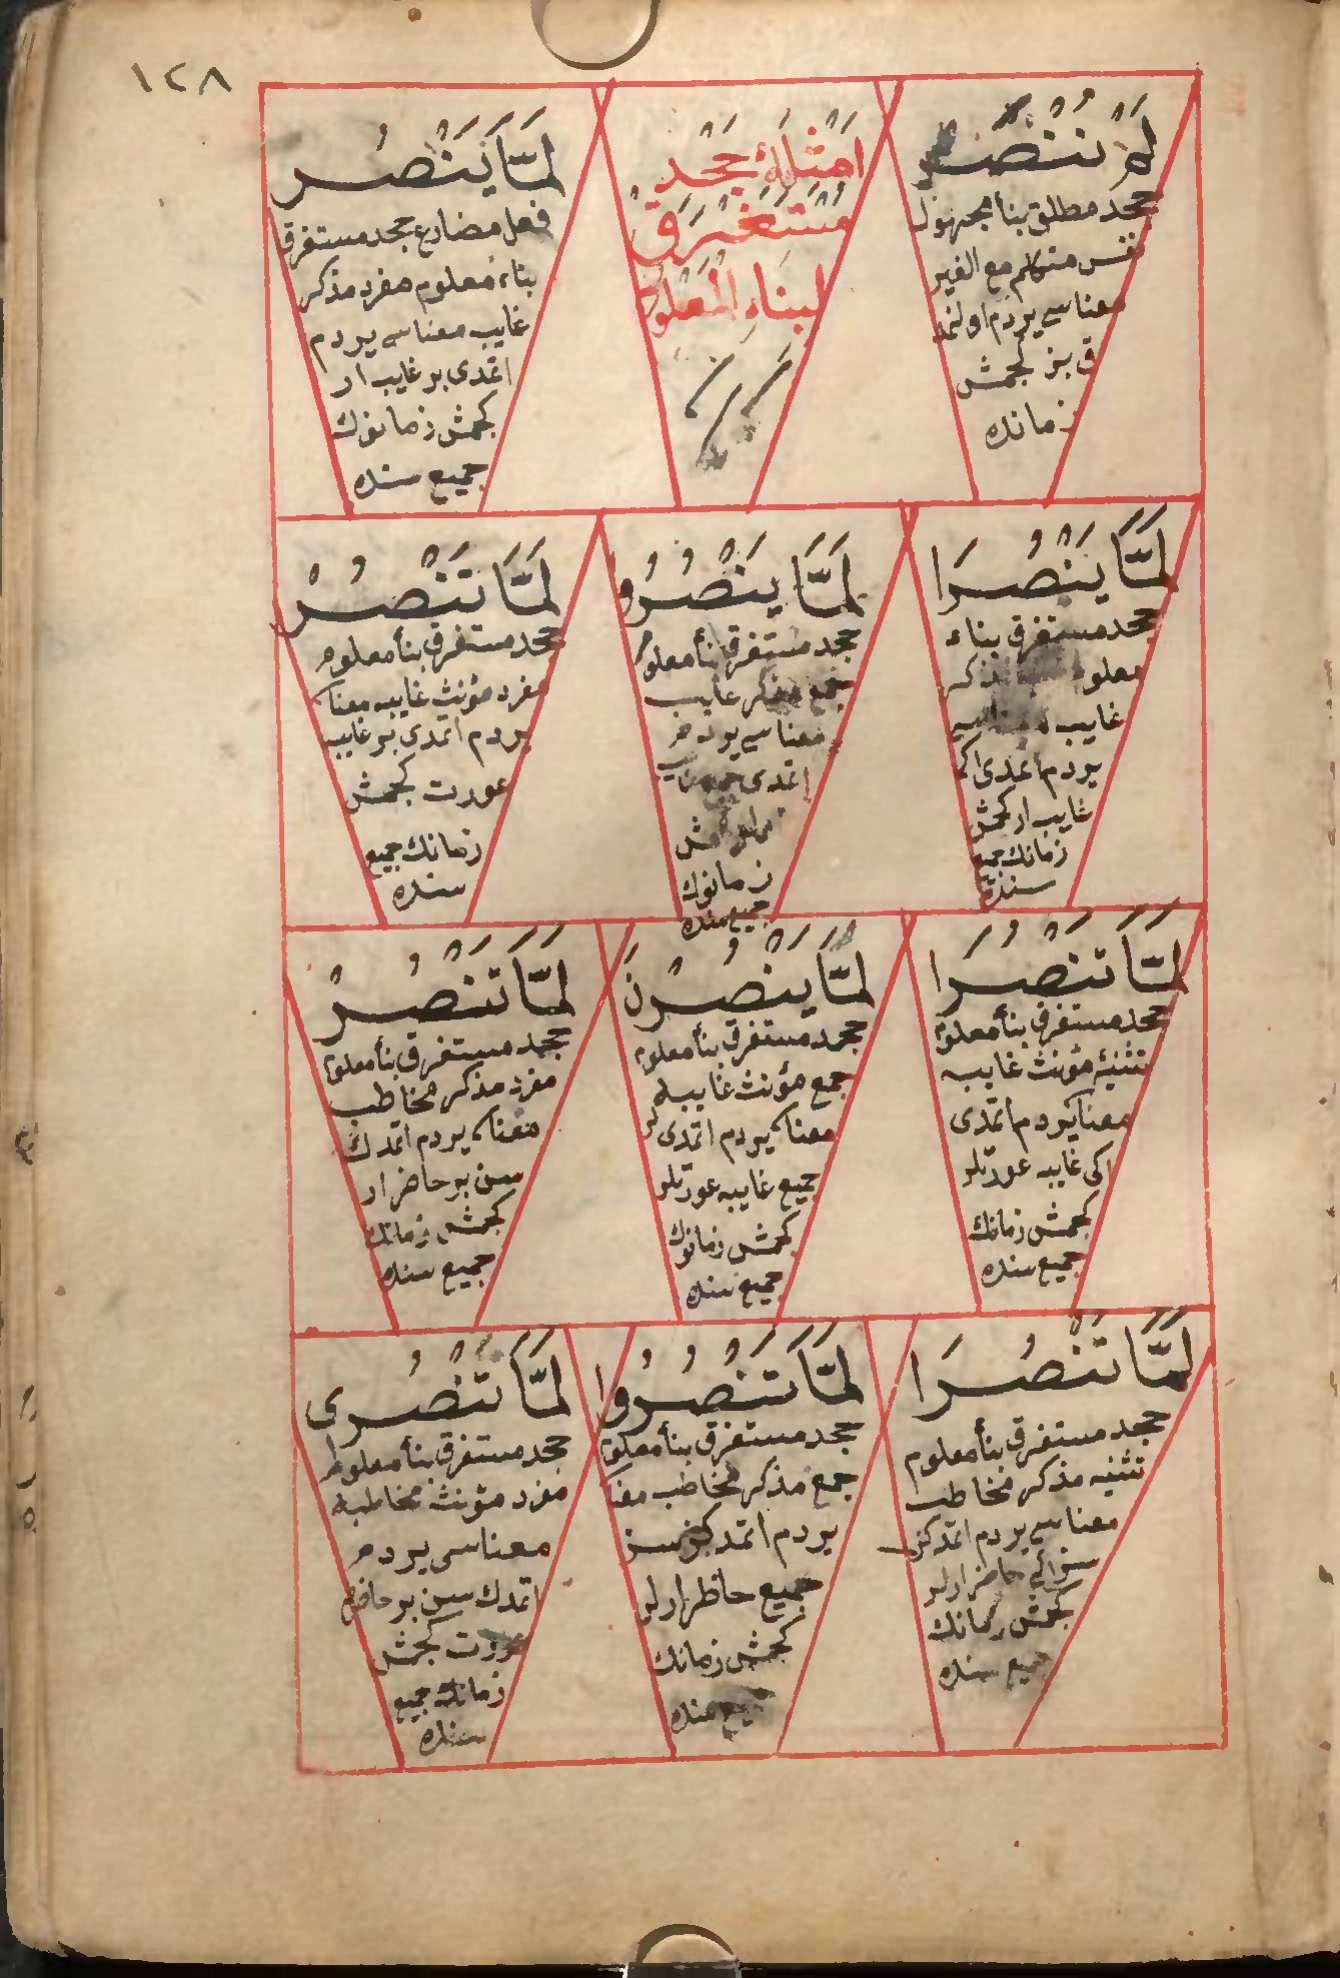 ١٢٨
لَمْ نُنْصَرْ
جحد مطلق بنأ مجهول
نفس متكلم مع الغير
معناسى يردم اولنمد
ق بز كجمش
زمانده
اَمْثِلَةُ جَحْدِ
مُسْتَغْرَقْ
لبناءِ المَعْلُومْ
لَمَّا يَنْصُر
فعل مضارع جحد مستغرق
بناء معلوم مفرد مذكر
غايب معناسى يردم
اتمدى بر غايب ار
كجمش زمانوك
جميع سنده
لَمَّا يَنْصُرَا
جحد مستغرق بناء
معلوم مذكر
غايب معناسى
يردم اتمدى اكى
غايب ار كجمش
زمانك جميع
سنده
لَمَّا يَنْصُرُو
جحد مستغرق بنأ معلوم
جمع مذكر غايب
معناسى يردم
اتمدى
زمانوك
جميع سنده
لَمَّا تَنْصُرْ
جحد مستغرق بنأ معلوم
مفرد مؤنث غايبه معنا
يردم اتمدى بر غايب
عورت كجمش
زمانك جميع
سنده
لَمَّا تَنْصُرَا
جحد مستغرق بنأ معلوم
تثنيۀ مؤنث غايبه
معنا يردم اتمدى
اكى غايبه عورتلر
كجمش زمانك
جميع سنده
لَمَّا يَنْصُرْنَ
جحد مستغرق بنأ معلوم
جمع مؤنث غايبه
معنا يردم اتمدى لر
جميع غايبه عورتلر
كجمش زمانوك
جميع سنده
لَمَّا تَنْصُرْ
جحد مستغرق بنأ معلوم
مفرد مذكر مخاطب
معنا يردم اتمدك
سن بر حاضر ار
كجمش زمانك
جميع سنده
لَمَّا تَنْصُرَا
جحد مستغرق بنأ معلوم
تثنيه مذكر مخاطب
معناسى يردم اتمدكز
سز اكى حاضر ارلر
كجمش زمانك
جميع سنده
لَمَّا تَنْصُرُوا
جحد مستغرق بنأ معلوم
جمع مذكر مخاطب معنا
يردم اتمدكوز سز
جميع حاظر ارلر
كجمش زمانك
جميع سنده
لَمَّا تَنْصُرِى
جحد مستغرق بنأ معلوم
مفرد مؤنث مخاطبه
معناسى يردم
اتمدك سن بر حاضر
عورت كجمش
زمانك جميع
سنده